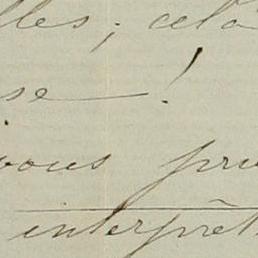 lles; cela
se — !
vous pri
interprêt